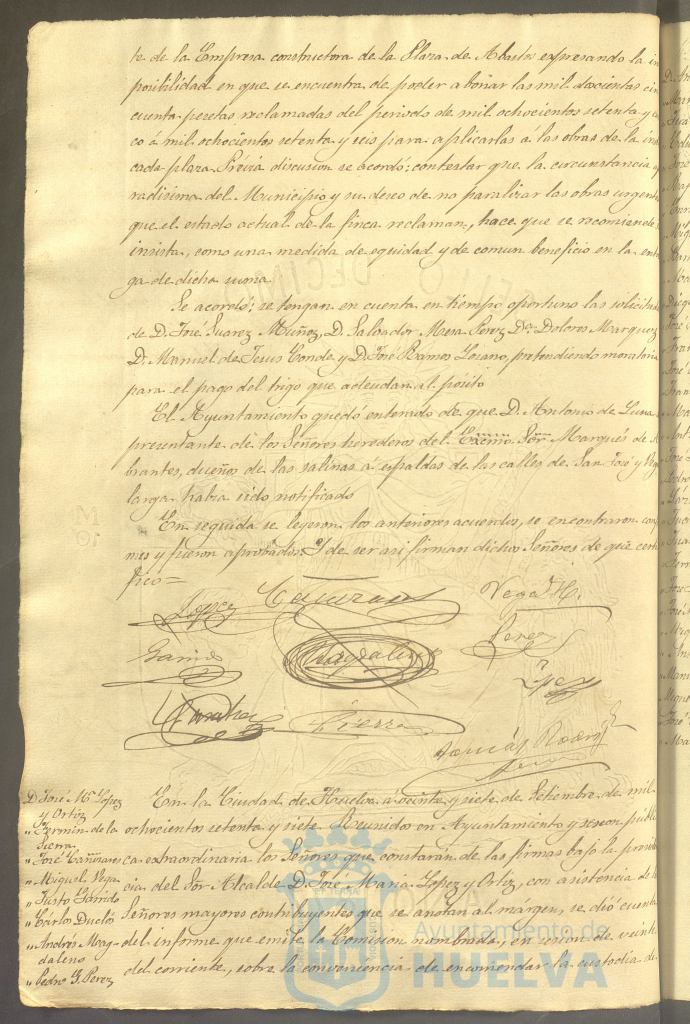 te de la Empresa constructora de la Plaza de Abastos expresando la im
posibilidad en que se encuentra de poder abonar las mil doscientas cin
cuenta pesetas reclamadas del periodo de mil ochocientos setenta y cin
co á mil ochocientos setenta y seis para aplicarlas á las obras de la indi
cada plaza. Prévia discusion se acordó; contestar que la circunstancia
radisima del Municipio y su deseo de no paralizar las obras urgentes
que el estado actual de la finca reclaman, hace que se recomiende é
insista, como una medida de equidad y de comun beneficio en la entre
ga de dicha suma.
Se acordó; se tengan en cuenta en tiempo oportuno las solicitudes
de D. José Suarez Muñoz, D. Salvador Mesa Perez Dª Dolores Marquez
D. Manuel de Jesus Conde y D. José Ramos Lozano, pretendiendo moratoria
para el pago del trigo que adeudan al pósito
El Ayuntamiento quedó enterado de que D. Antonio de Luna
presentante de los Señores herederos del Excmo. Sor. Marqués de A
brantes, dueños de las salinas á espaldas de las calles de San José y
larga habia sido notificado
En seguida se leyeron los anteriores acuerdos, se encontraron confor
mes y fueron aprobados. Y de ser asi firman dichos Señores de que certi
fico=
Lopez
Cañizares
Vega M.
Garrido
Magdaleno
Perez
Lopez
Sierra
Tomás Rodrig
D. José Mª Lopez
y Ortiz
" Fermin de la
Sierra
" José Cañizares
" Miguel Vega
" Justo Garrido
" Cárlos Duclós
" Andrés Mag-
daleno
" Pedro G. Perez
En la Ciudad de Huelva a veinte y siete de Setiembre de mil
ochocientos setenta y siete. Reunidos en Ayuntamiento y sesion públi
ca extraordinaria los Señores que constarán de las firmas bajo la presiden
cia del Sor Alcalde D. José Maria Lopez y Ortiz, con asistencia de los
Señores mayores contribuyentes que se anotan al márgen, se dió cuenta
del informe que emite la Comision nombrada, en sesion de veinte
del corriente, sobre la conveniencia de encomendar la custodia de
Ayuntamiento de
HUELVA